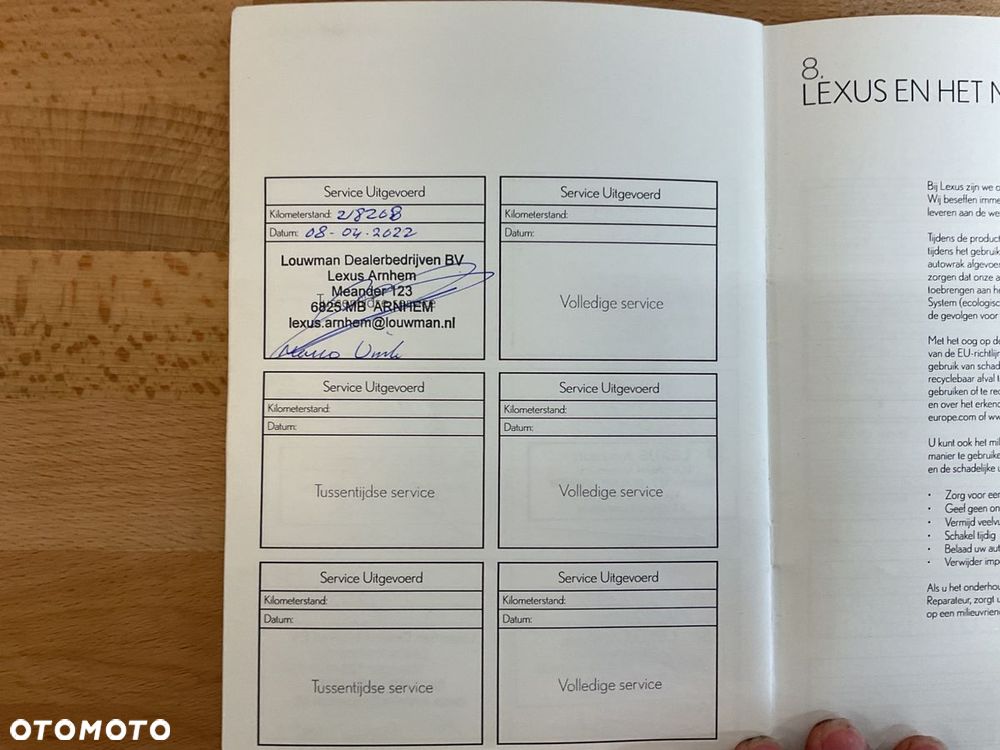 Service Uitgevoerd
Kilometerstand: 218268
Datum: 08-04-2022
Louwman Dealerbedrijven BV
Lexus Arnhem
Meander 123
6825 MB ARNHEM
lexus.arnhem@louwman.nl
Service Uitgevoerd
Kilometerstand:
Datum:
Volledige service
Service Uitgevoerd
Kilometerstand:
Datum:
Tussentijdse service
Service Uitgevoerd
Kilometerstand:
Datum:
Volledige service
Service Uitgevoerd
Kilometerstand:
Datum:
Tussentijdse service
Service Uitgevoerd
Kilometerstand:
Datum:
Volledige service
8.
LEXUS EN HET
Bij Lexus zijn we
Wij beseffen
leveren aan de
Tijdens de
tijdens het
autowrak
zorgen dat onze
toebrengen aan
System
de gevolgen voor
Met het oog op
van de
gebruik van
recyclebaar afval
gebruiken of te
en over het
europe.com of
U kunt ook het
manier te
en de schadelijke
• Zorg voor
• Geef geen
• Vermijd
• Schakel tijdig
• Belaad uw
• Verwijder
Als u het
Reparateur, zorgt
op een
OTOMOTO